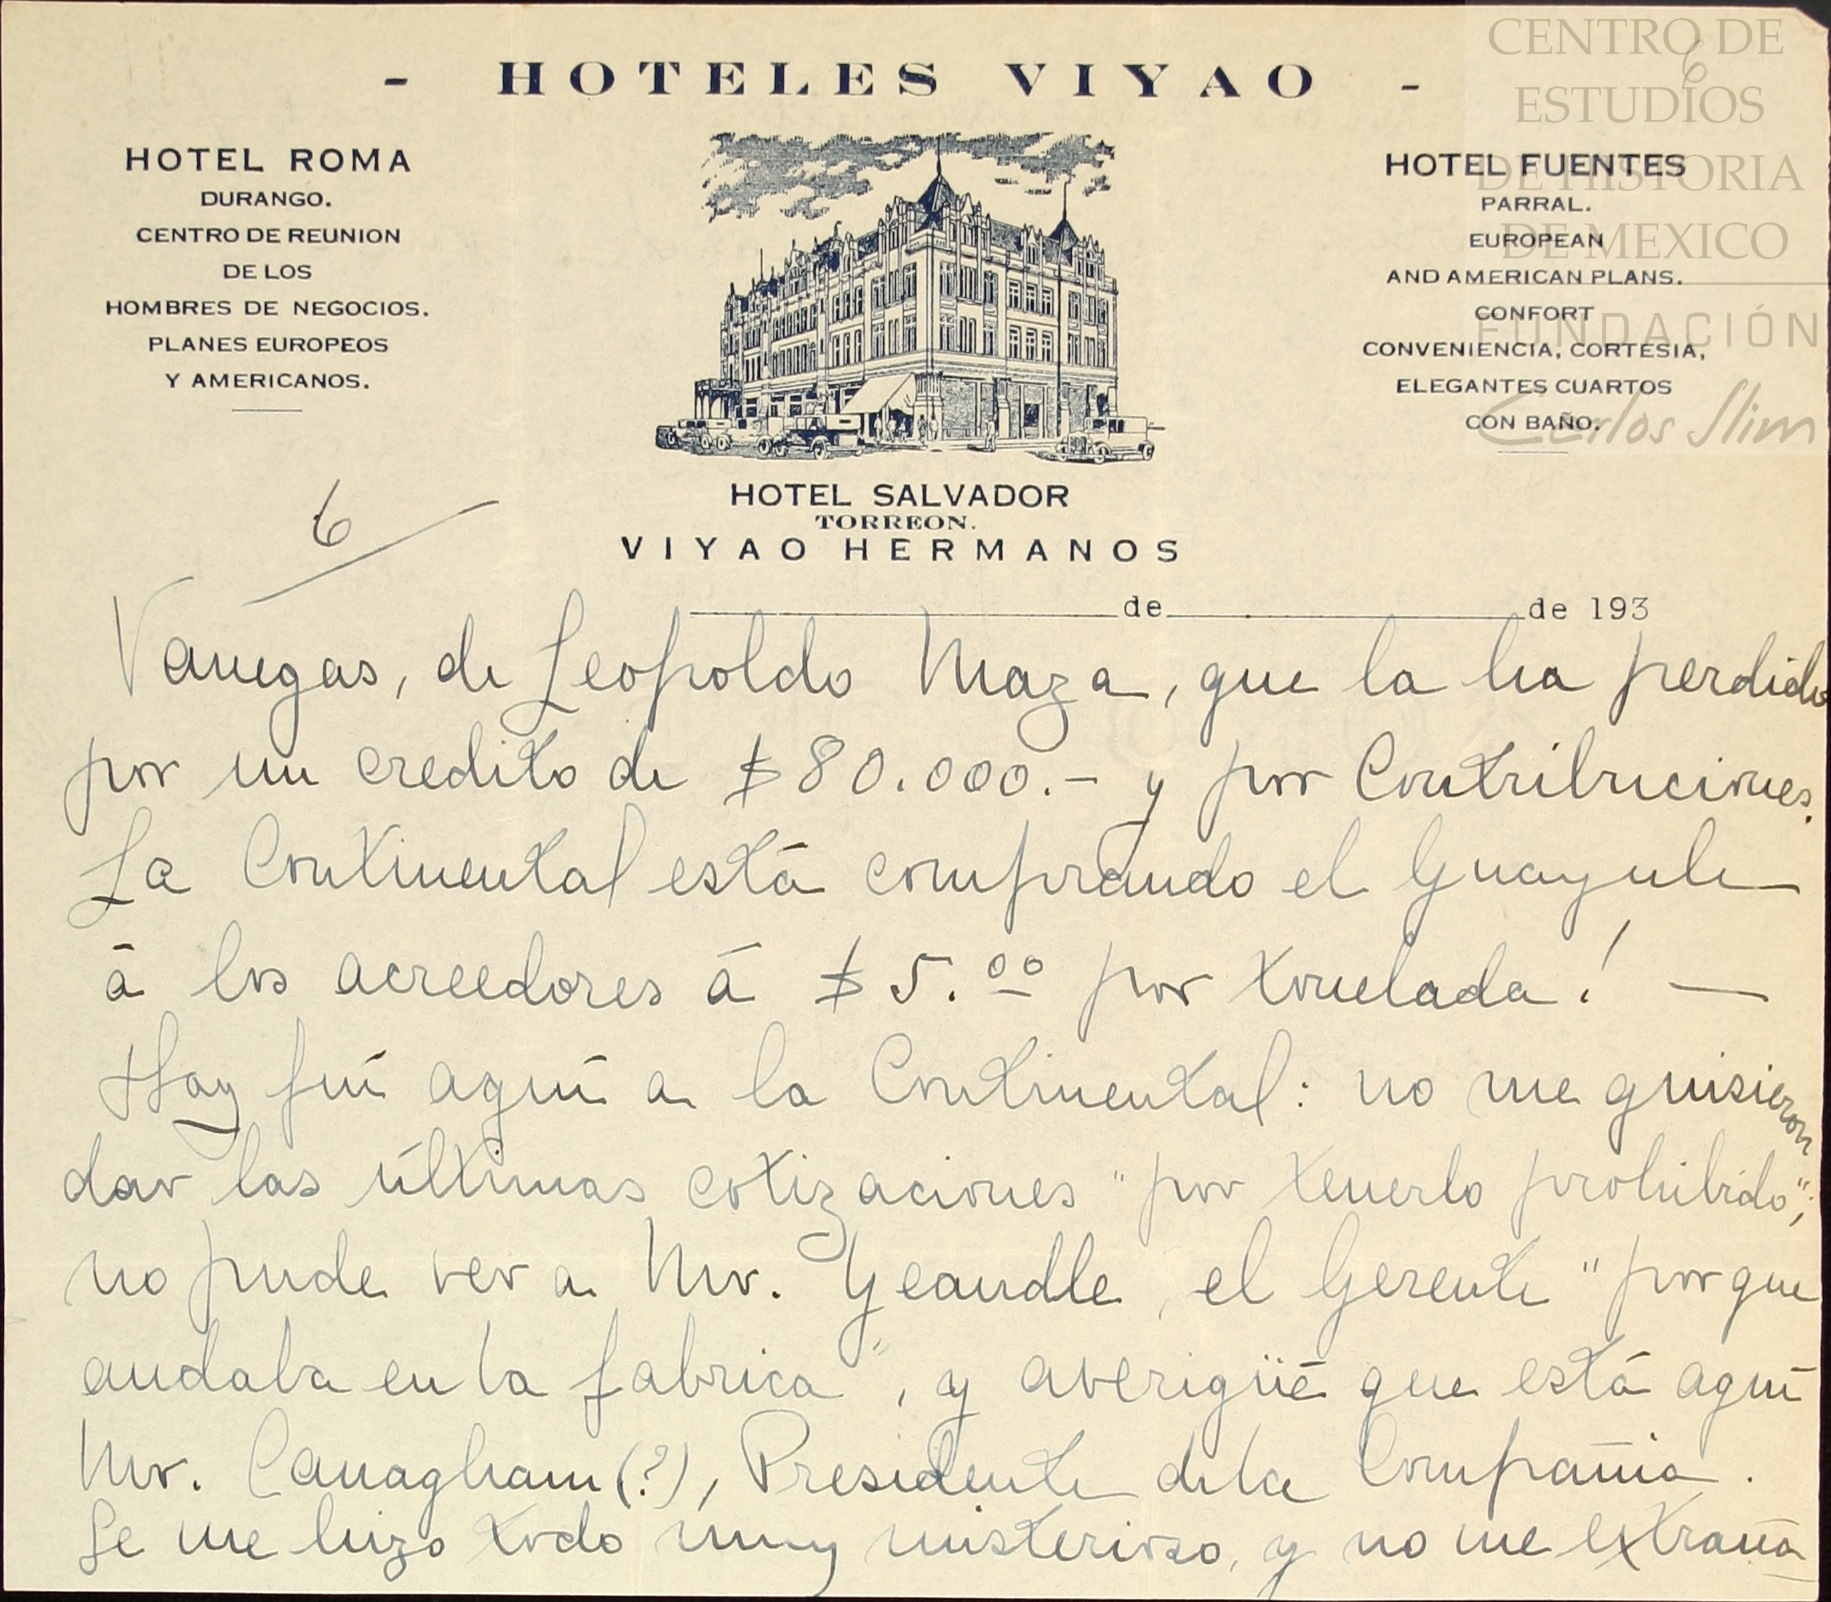 CENTRO DE
ESTUDIOS
DE HISTORIA
DE MEXICO
FUNDACIÓN
Carlos Slim
6
- HOTELES VIYAO -
HOTEL ROMA
DURANGO.
CENTRO DE REUNION
DE LOS
HOMBRES DE NEGOCIOS.
PLANES EUROPEOS
Y AMERICANOS.
HOTEL FUENTES
PARRAL.
EUROPEAN
AND AMERICAN PLANS.
CONFORT
CONVENIENCIA, CORTESIA,
ELEGANTES CUARTOS
CON BAÑO.
HOTEL SALVADOR
TORREON.
VIYAO HERMANOS
6
de de 193
Vanegas, de Leopoldo Maza, que la ha perdido
por un credito de $80.000.- y por Contribuciones.
La Continental está comprando el Guayule
á los acreedores á $5.00 por tonelada! —
Hay fuí aquí a la Continental: no me quisieron
dar las últimas cotizaciones "por tenerlo prohibido";
no pude ver a Mr. Yeandle, el Gerente "porque
andaba en la fabrica", y averigüé que está aquí
Mr. Canagham (?), Presidente de la Compañia.
Se me hizo todo muy misterioso, y no me extraña